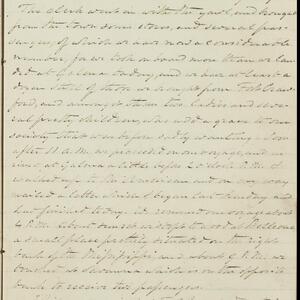 The clerk went on with the yawl, and brought
from the town down stairs, and several pas-
sengers, of which we had now a considerable
number, for we took on board more than we lan-
ded at Galena today, and we have at least a
dozen
and amongst them two ladies and seve-
ral pretty children, who add a grace to our
society that was before sadly wanting. Soon
after 11 A.M. we proceeded on our voyage, and ar-
rived at Galena a little before 2 o'clock P.M. I
walked up to the American and on my way
mailed a letter which I began last Sunday and
but finished today. We resumed our voyage about
4 P.M. About sunset we stopt to wood at Bellevue
a small place prettily situated on the right
bank of the Mississippi, and about 9 P.M. we
touched at Savanna which is on the opposite
bank to receive two passengers.